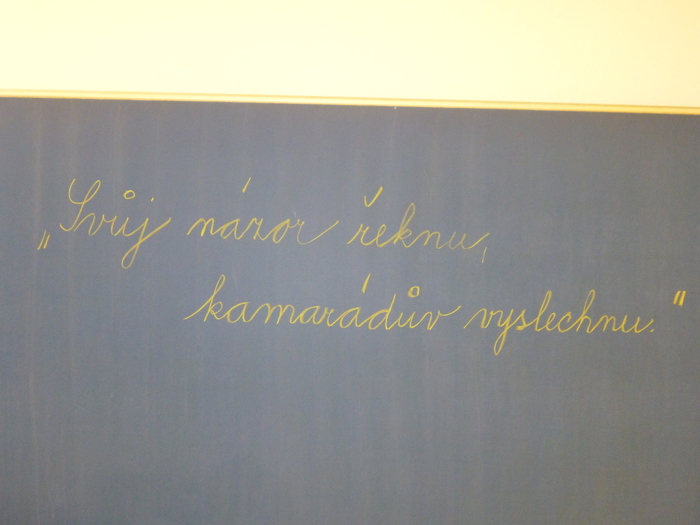 „Svůj názor řeknu,
kamarádův vyslechnu."